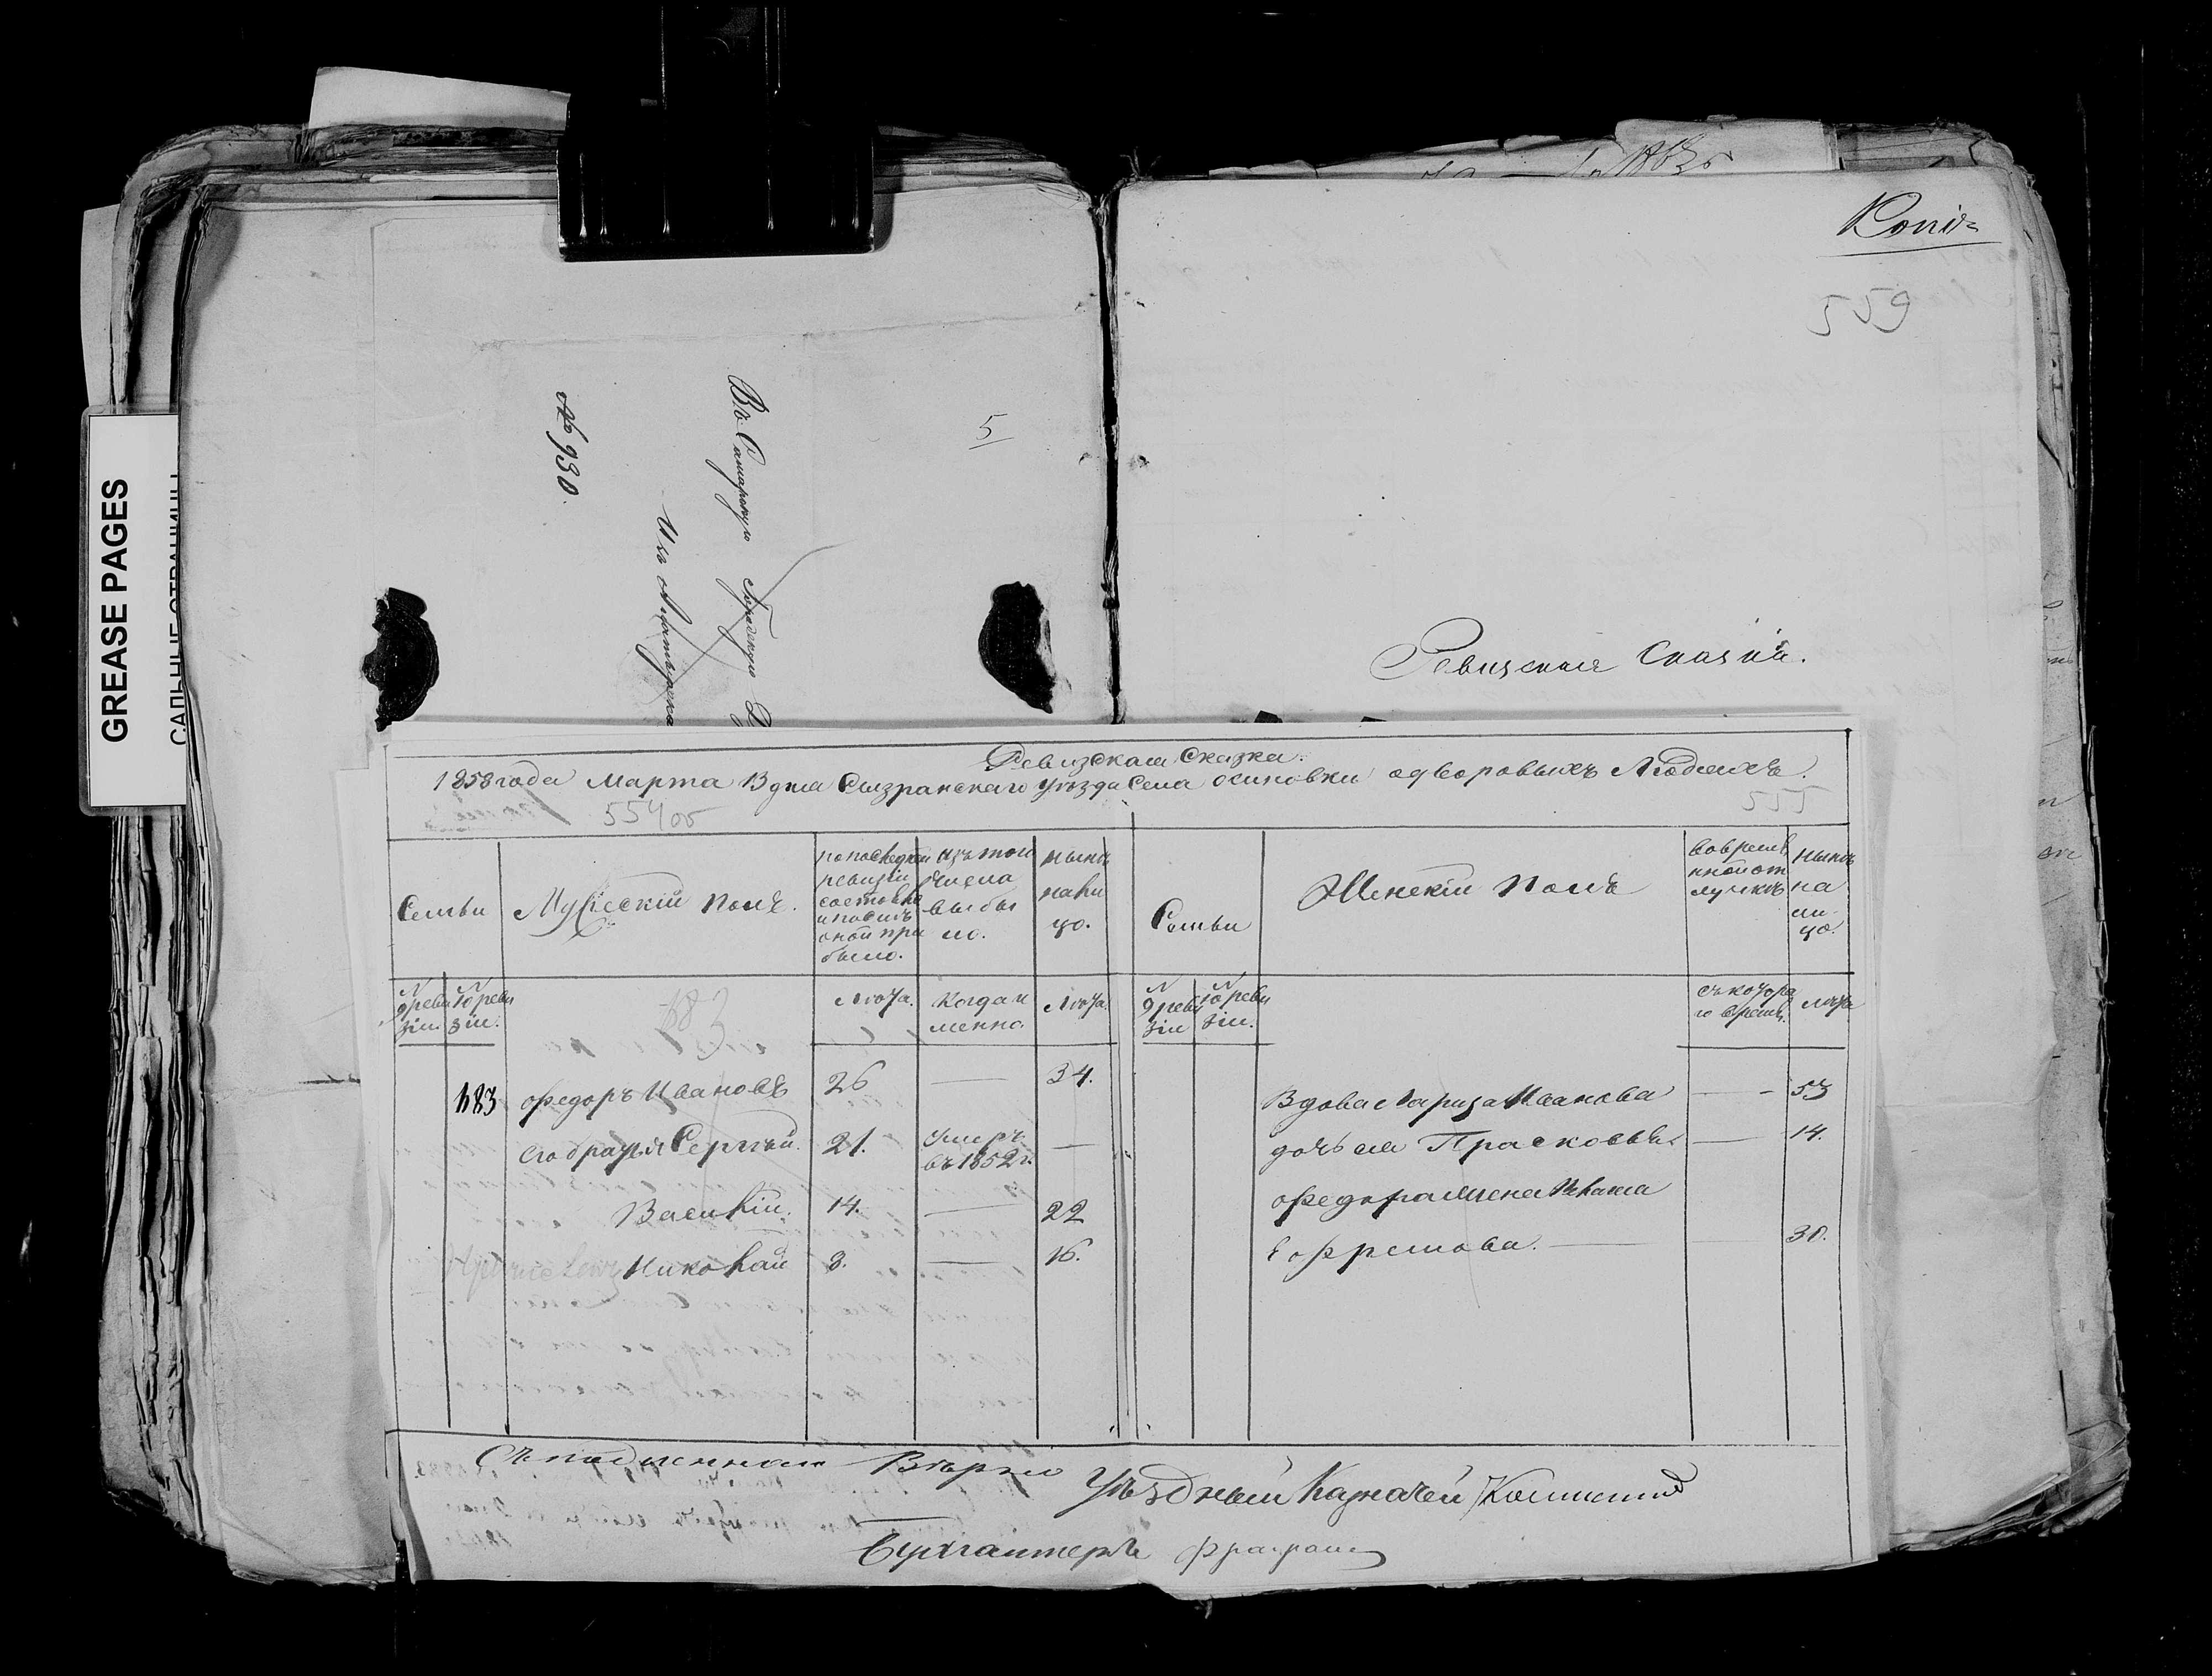 GREASE PAGES
Копія
559
5
№ 930.
Въ Самарскую Городскую
Изъ
Ревизская Сказка.
Ревизская Сказка.
1858 года Марта 13 дня Сызранскаго уѣзда Села Осиновки одворовыхъ Людяхъ.
554 об
555
Семьи
Мужескій полъ.
попослѣдней ревизіи состояло и послѣ оной прибыло.
изътого числа выбыло.
нынѣ налицо.
Семьи
Женскій полъ
вовременной отлучкѣ
нынѣ налицо.
№ 9 ревизіи
№ 10 ревизіи.
183
Лѣта.
Когда именно
Лѣта.
№ 9 ревизіи
№ 10 ревизіи.
съкотораго времѣн.
лѣта
183 Ѳедоръ Ивановъ 26 — 34.
Вдова Лариза Иванова — 53
его братья Сергѣй. 21. Умеръ въ 1852 г. —
дочь ея Прасковья — 14.
Василій. 14. — 22
Ѳедора жена
Николай 8. — 16.
30.
Съ подлинною Вѣрно
Уѣздный Казначей
Бухгалтеръ